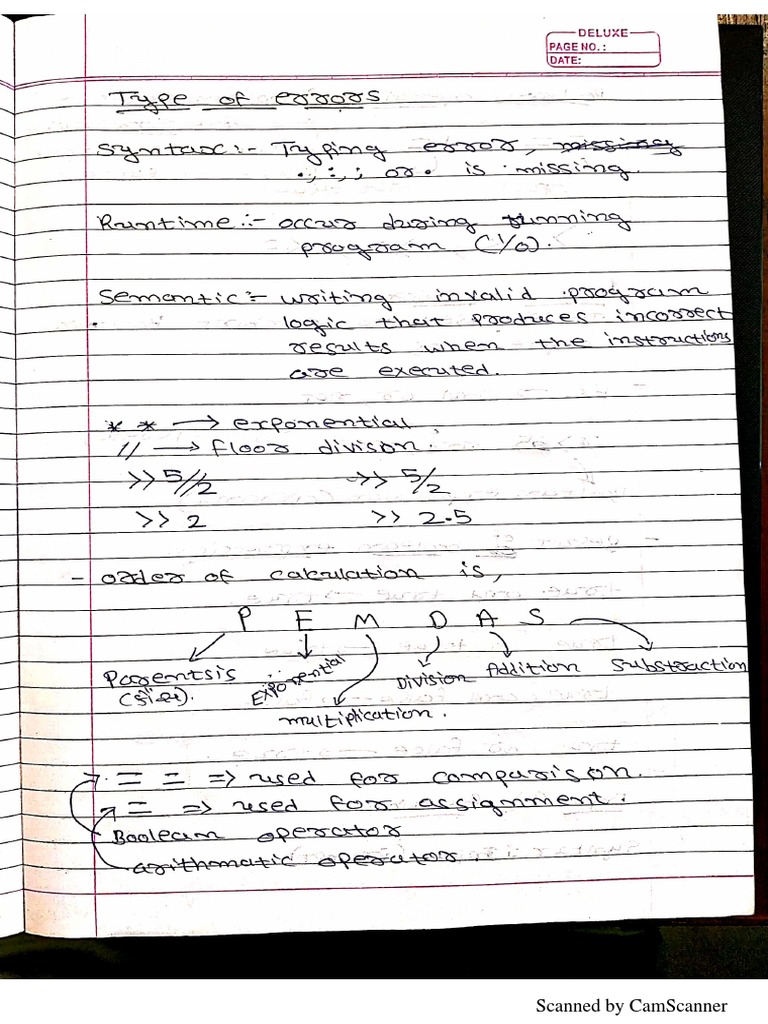 DELUXE
PAGE NO.:
DATE:
Type of errors
Syntax :- Typing error, missing
., :, ; or . is missing.
Runtime :- occur during running
program (1/0).
Semantic :- writing invalid program
logic that produces incorrect
results when the instructions
are executed.
* * → exponential.
// → floor divison.
>> 5//2 >> 5/2
>> 2 >> 2.5
- order of calculation is,
P E M D A S
Parentsis Exponential Division Addition Substraction
multiplication.
= = => used for comparison.
= => used for assignment.
Boolean operator
arithmatic operator.
Scanned by CamScanner